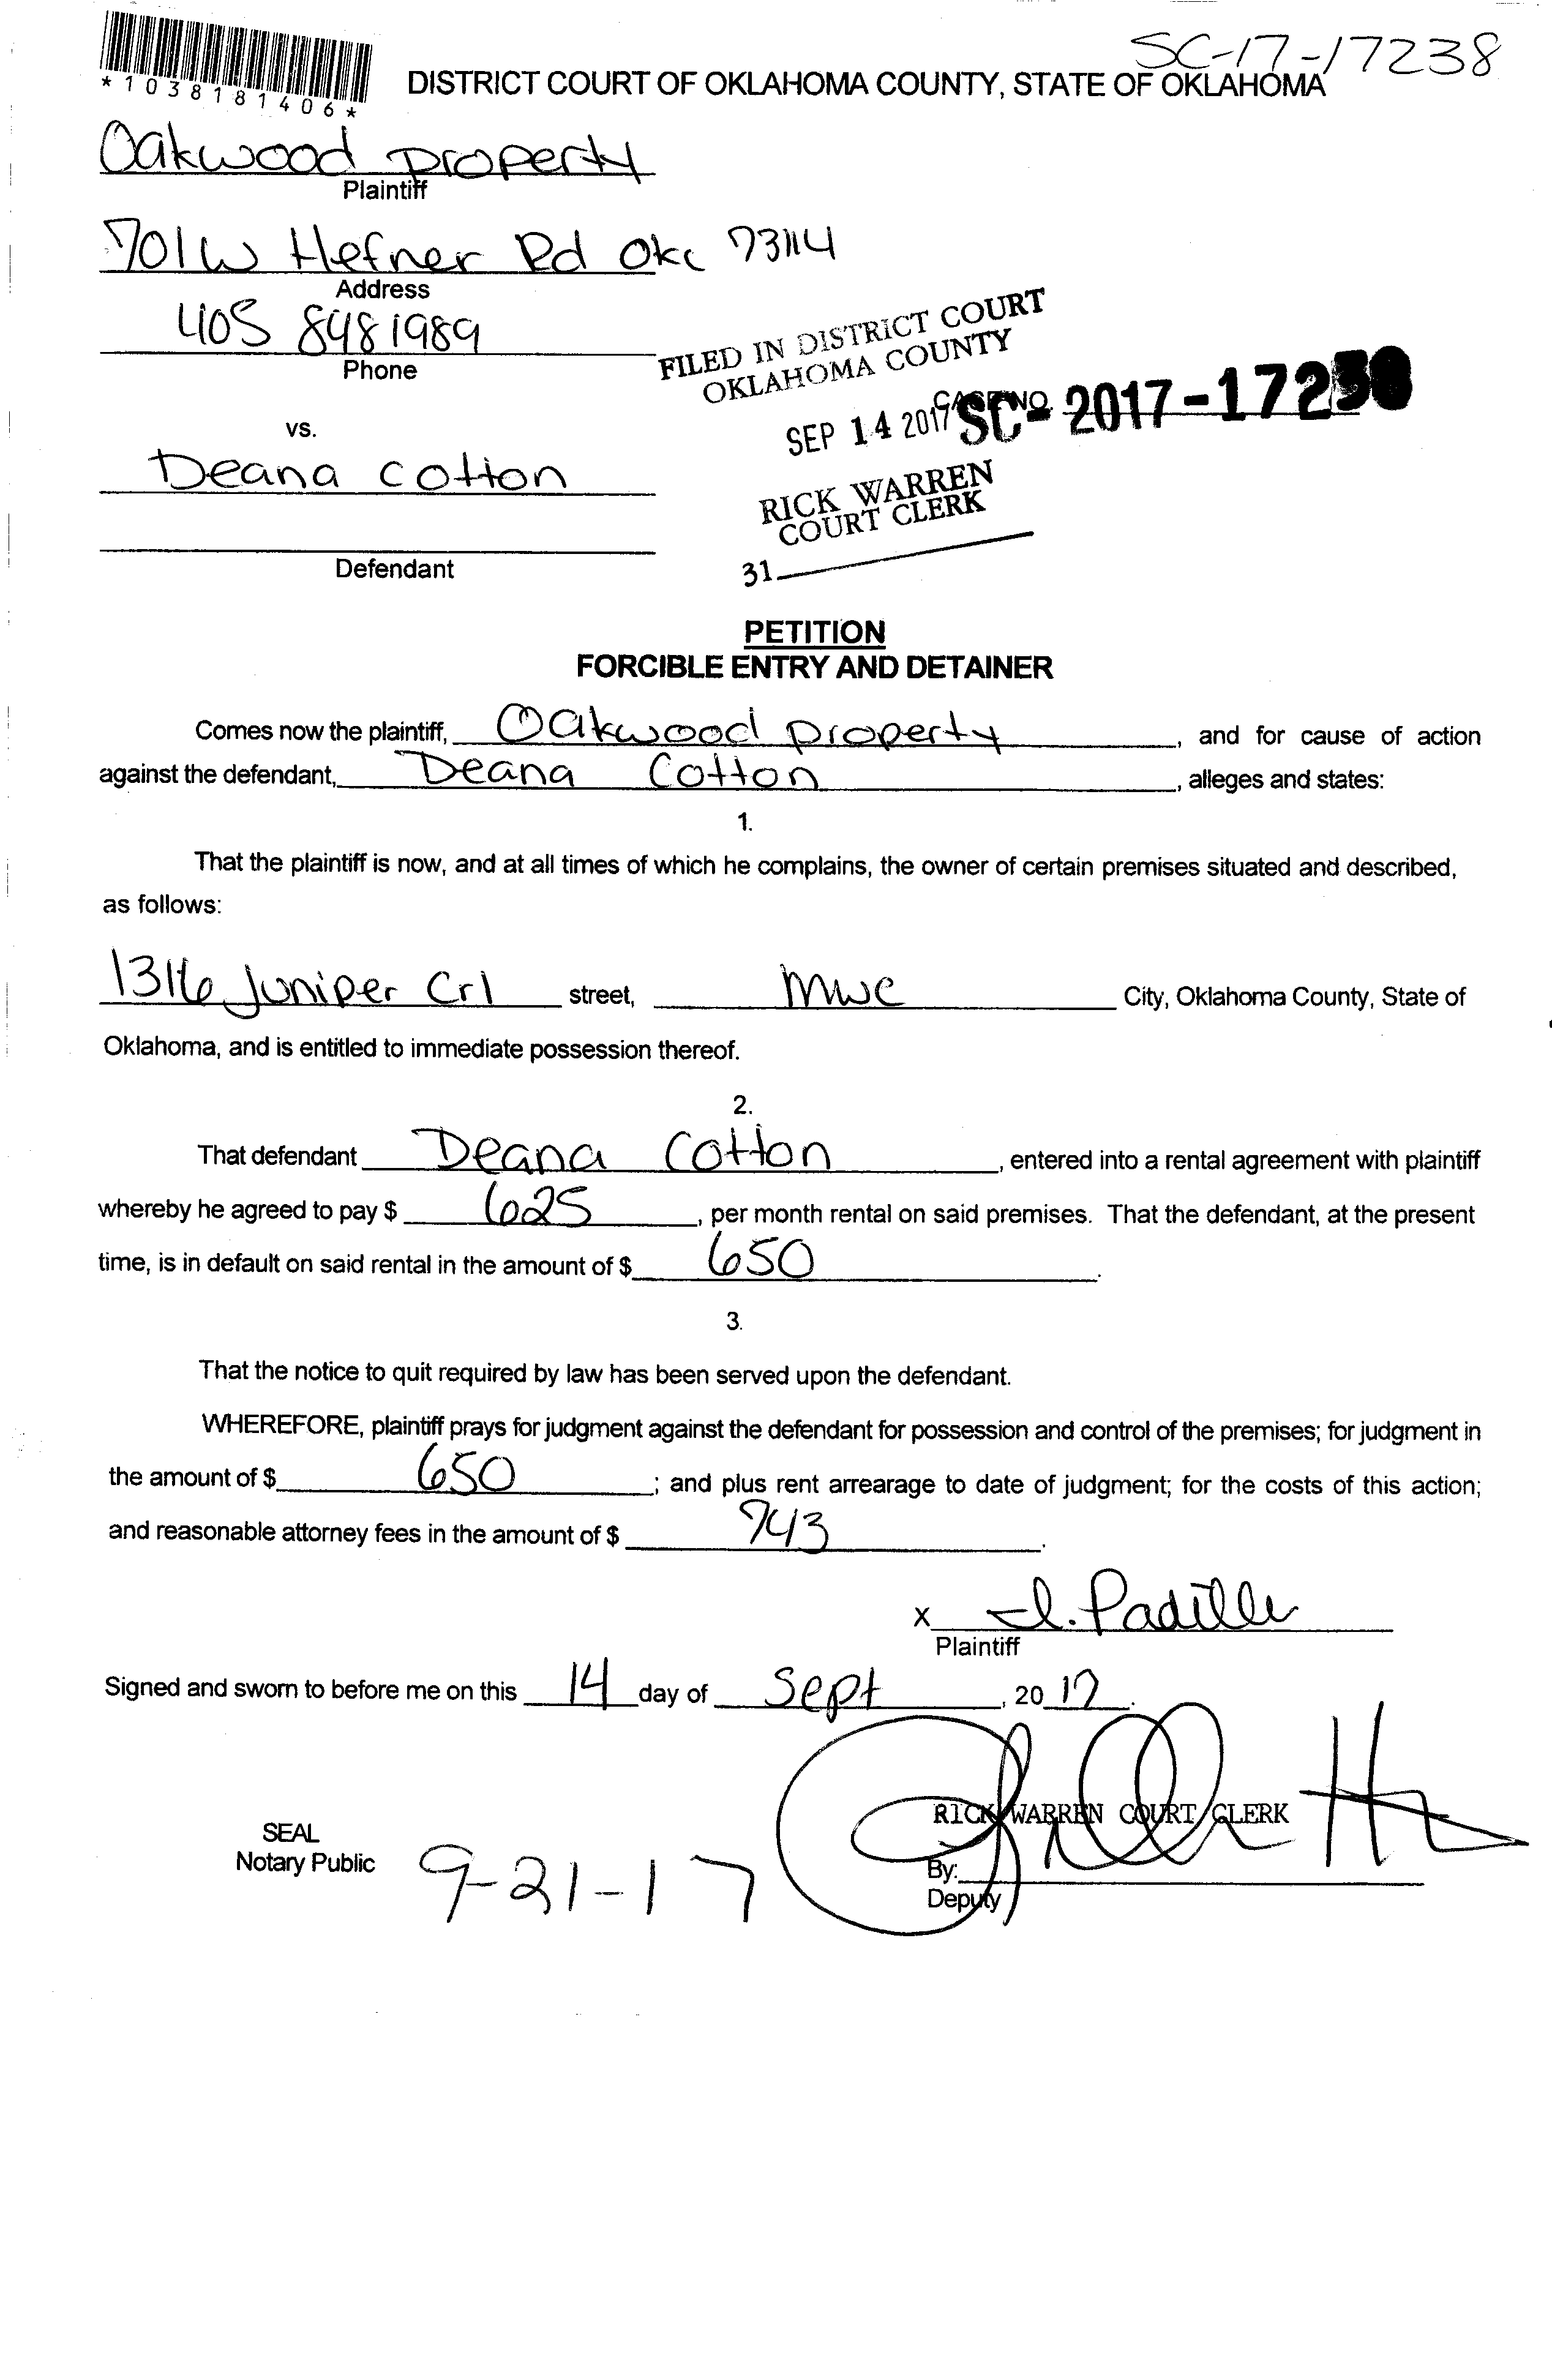 SC-17-17238
*1038181406*
DISTRICT COURT OF OKLAHOMA COUNTY, STATE OF OKLAHOMA
Oakwood property
Plaintiff
701 W Hefner Rd Okc 73114
Address
405 848 1989
Phone
FILED IN DISTRICT COURT
OKLAHOMA COUNTY
SEP 14 2017
CASE NO. SC-2017-17238
RICK WARREN
COURT CLERK
31
vs.
Deana Cotton
Defendant
PETITION
FORCIBLE ENTRY AND DETAINER
Comes now the plaintiff, Oakwood property, and for cause of action
against the defendant, Deana Cotton, alleges and states:
1.
That the plaintiff is now, and at all times of which he complains, the owner of certain premises situated and described,
as follows:
1316 Juniper Crl street, mwc City, Oklahoma County, State of
Oklahoma, and is entitled to immediate possession thereof.
2.
That defendant Deana Cotton, entered into a rental agreement with plaintiff
whereby he agreed to pay $ 625, per month rental on said premises. That the defendant, at the present
time, is in default on said rental in the amount of $ 650.
3.
That the notice to quit required by law has been served upon the defendant.
WHEREFORE, plaintiff prays for judgment against the defendant for possession and control of the premises; for judgment in
the amount of $ 650; and plus rent arrearage to date of judgment; for the costs of this action;
and reasonable attorney fees in the amount of $ 743.
x I. Padilla
Plaintiff
Signed and sworn to before me on this 14 day of Sept, 2017.
RICK WARREN COURT CLERK
SEAL
Notary Public
9-21-17
By:
Deputy